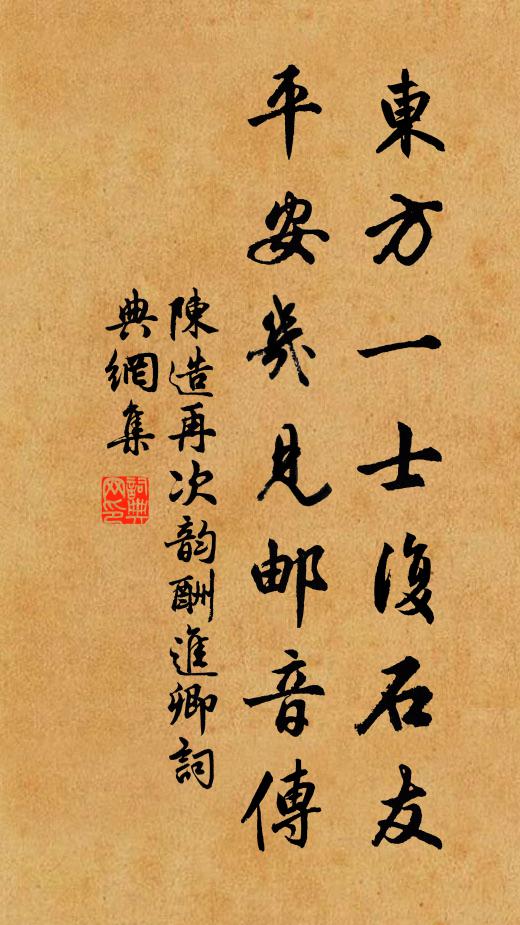 東方一士復石友
平安幾見邮音傳
陳造再次韵酬進卿詞
典網集
詞典
网印